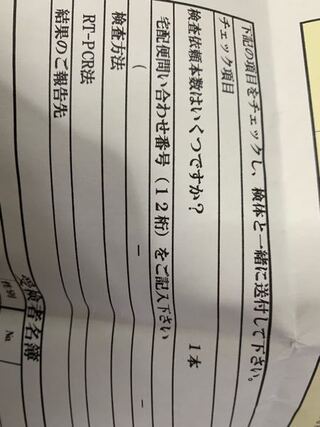 下記の項目をチェックし、検体と一緒に送付して下さい。
チェック項目
検査依頼本数はいくつですか？ 1本
宅配便問い合わせ番号（12桁）をご記入下さい
（ － －
検査方法
RT-PCR法
結果のご報告先
受検者名簿
No. 性別